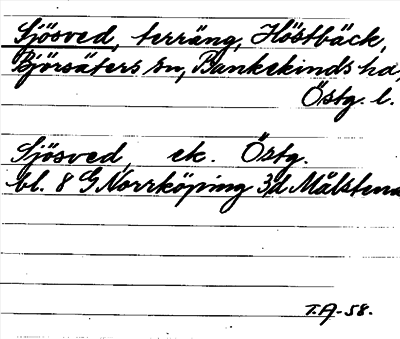 Sjösved, terräng, Höstbäck,
Björsäters sn, Bankekinds hd,
Östg. l.
Sjösved, ek. Östg.
bl. 8 G Norrköping 3d Målstena
T.A-58.